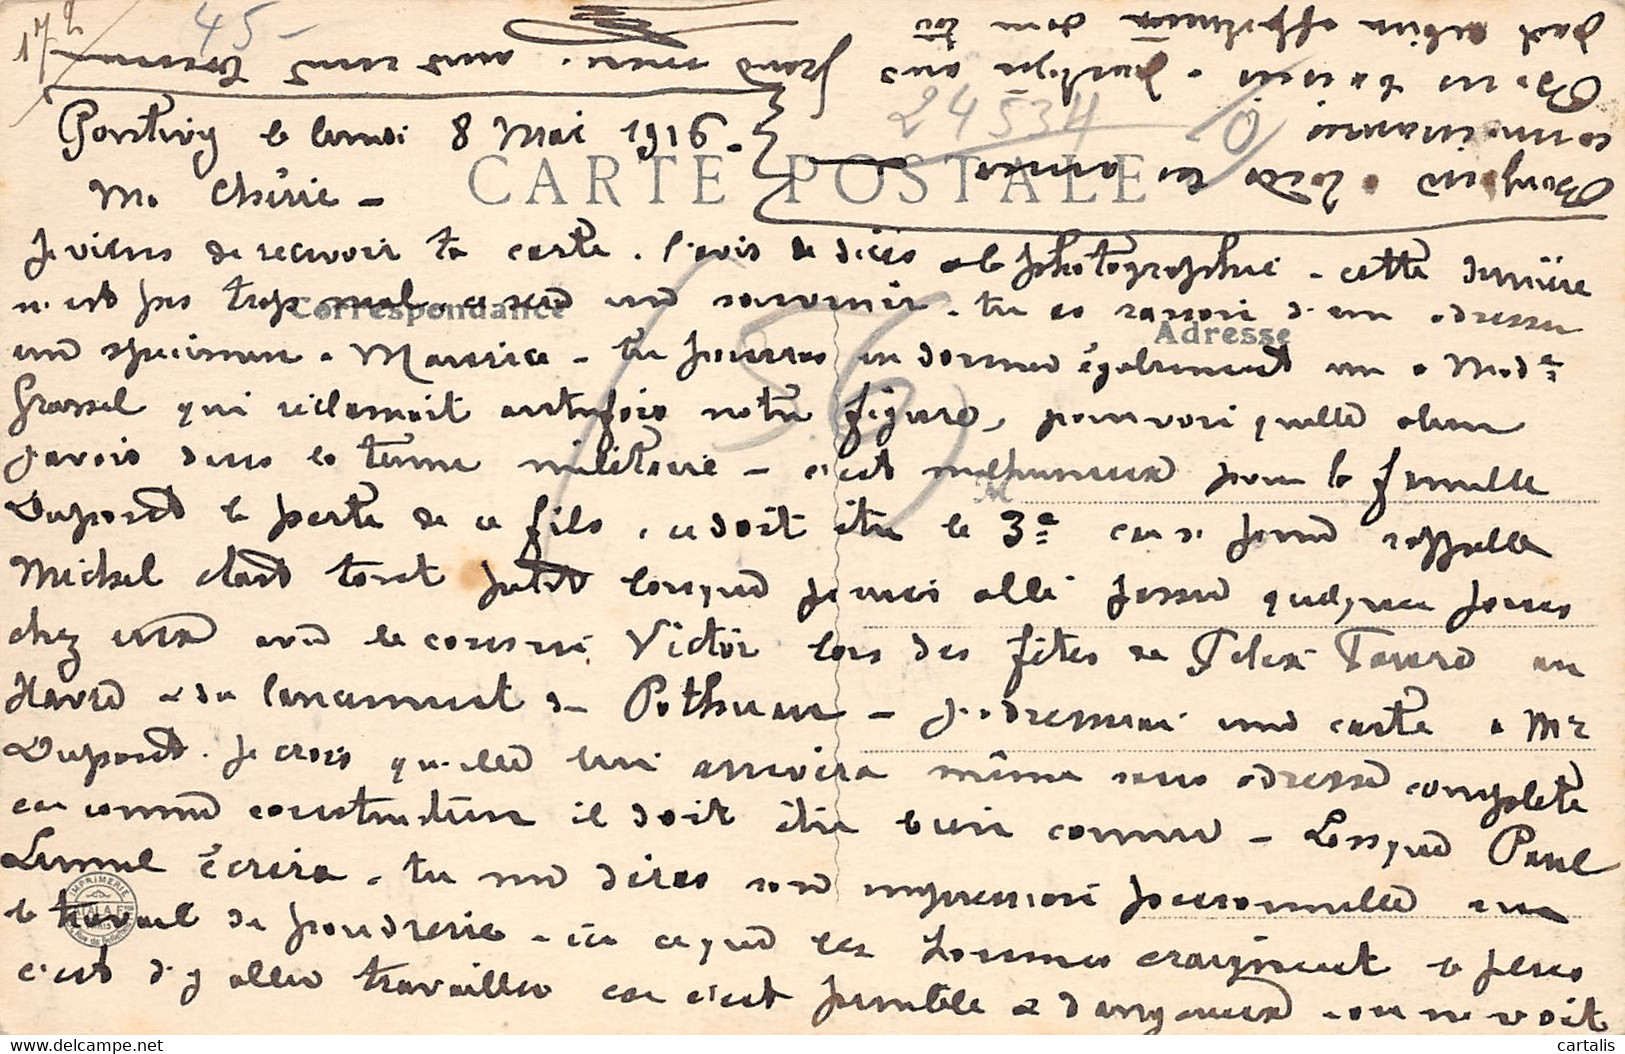 17h
45-
24534
Pontivy le lundi 8 Mai 1916.
CARTE POSTALE
Ma Chérie -
Je viens de recevoir ta carte. l'avis de décès et la photographie - cette dernière
n'est pas trop mal, ce sera un souvenir. tu as raison d'en adresser
Correspondance
Adresse
un spécimen a Maurice - tu pourras en donner également un a Mad.e
Grassel qui réclamait autrefois notre figure, pour voir quelle allure
j'avais dans la tenue militaire - c'est malheureux pour la famille
Dupont la perte de ce fils, ce doit être le 3e car je me rappelle
Michel étant tout petit lorsque je suis allé passer quelques jours
chez eux avec le cousin Victor lors des fêtes de Félix Faure au
Havre et du lancement du Pothuau - j'adresserai une carte a Mr
Dupont. Je crois qu'elle lui arrivera même sans adresse complète
car comme constructeur il doit être bien connu - Lorsque Paul
Lunel écrira, tu me diras son impression personnelle sur
le travail de poudrerie - ici ce que les hommes craignent le plus
c'est d'y aller travailler car c'est pénible et dangereux - on ne voit
Bonjour a toutes les amies
connaissances
grand merci.